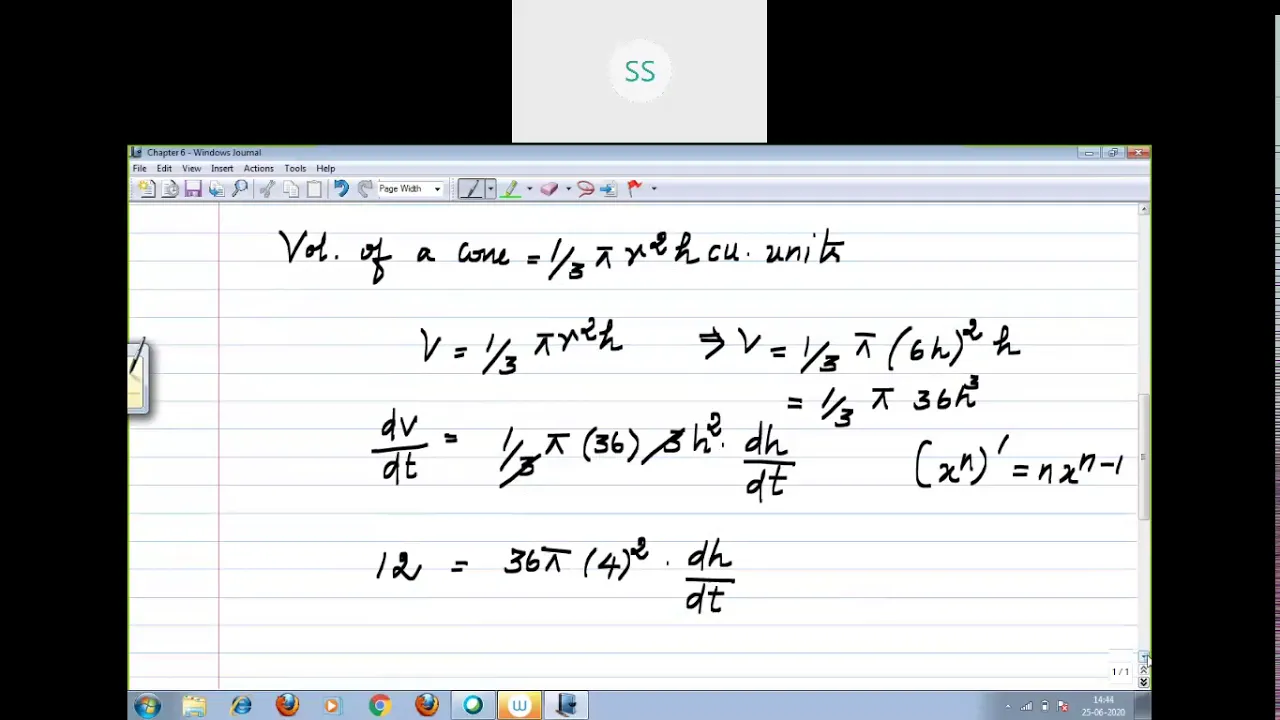 SS
Chapter 6 - Windows Journal
File Edit View Insert Actions Tools Help
Page Width
Vol. of a cone = 1/3 π r²h cu. units
V = 1/3 πr²h ⇒ V = 1/3 π (6h)² h
= 1/3 π 36h³
dv/dt = 1/3 π (36) 3h² · dh/dt
(xⁿ)' = nxⁿ⁻¹
12 = 36π (4)² · dh/dt
1 / 1
14:44
25-06-2020